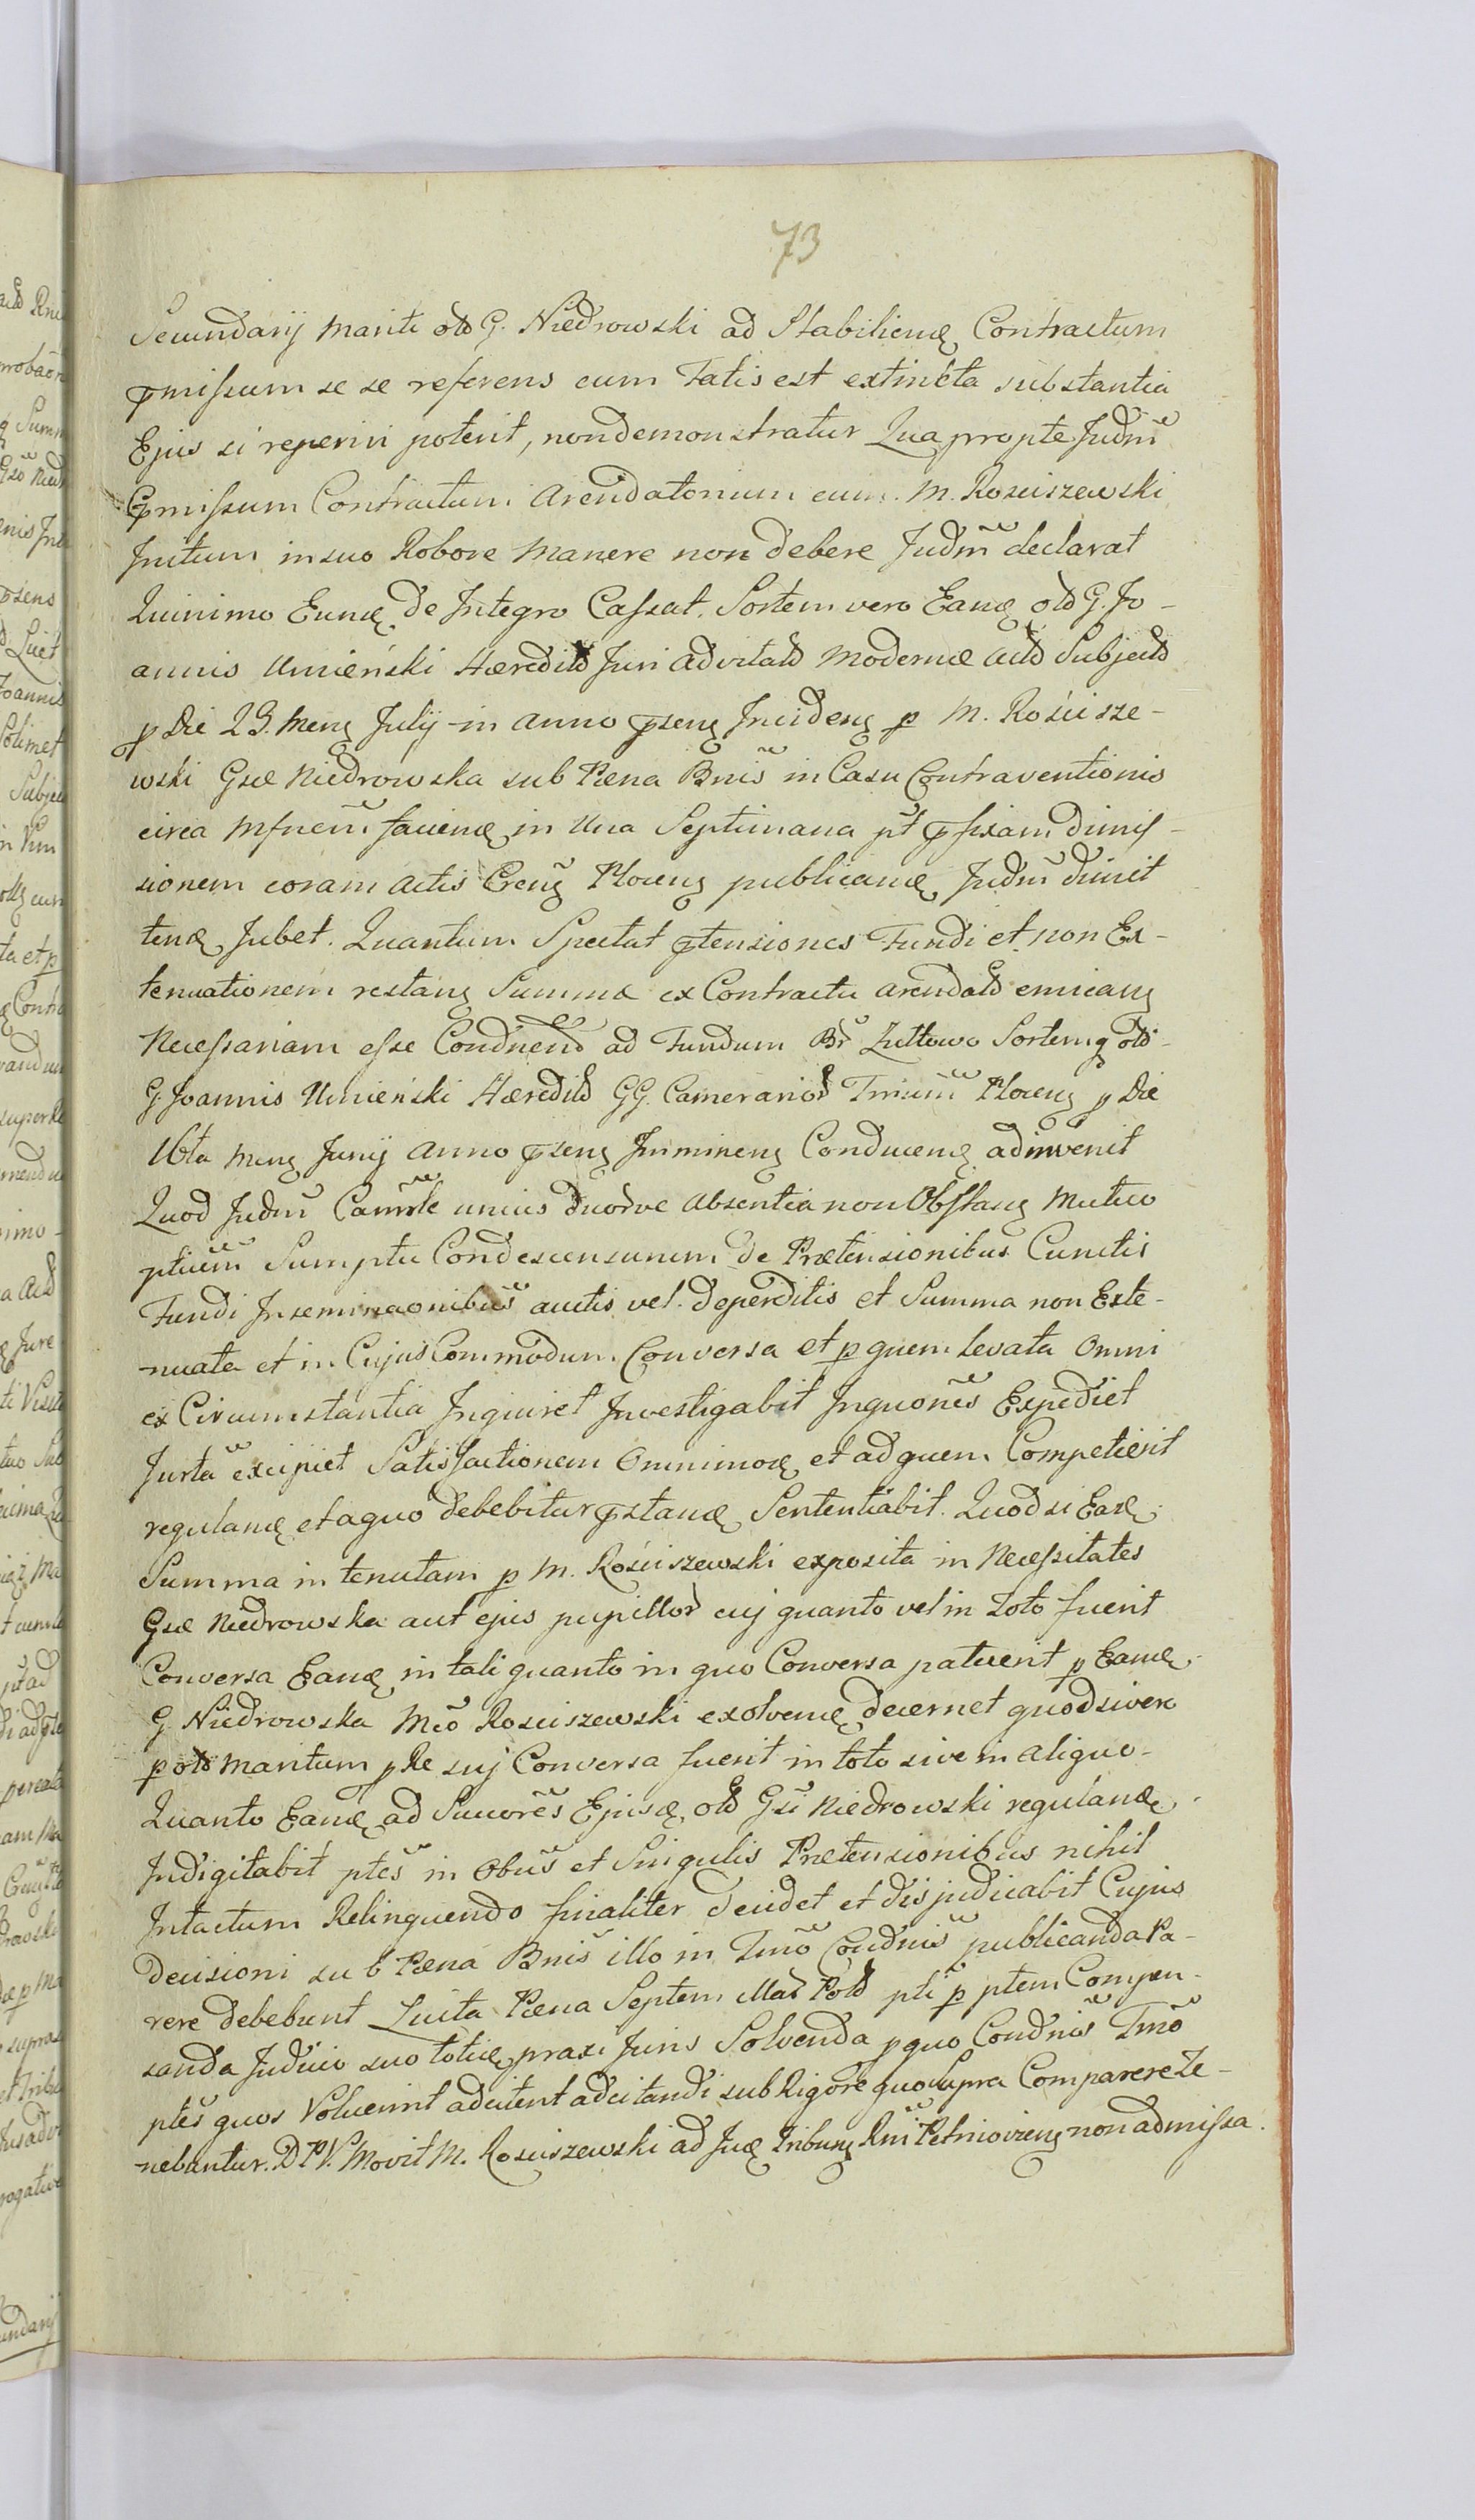 73
Secundarij Mariti old G. Niedrowski ad Stabiliend Contractum
pmissum se se referens cum Fatis est extincta substantia
Ejus si reperiri poterit, non demonstratur Qua propte Judm̃
Pmissum Contractum Arendatorium cum M. Rosciszewski
Initum in suo Robore Manere non debere Judm̃ declarat
Quinimo Eund de Integro Cassat. Sortem vero Eand old G. Jo-
annis Umieński Hæredit Juri advitalit Modernæ Act Subject
p Die 23. Mens Julij in Anno psens Incidens p M. Rościsze-
wski Gsæ Niedrowska sub Pæna Bnis̃ in Casu Contraventionis
circa faciend in Una Septimana pt̃ pfixam dimis-
sionem coram Actis Crens̃ Plocens publicand Judm̃ dimit
tend Jubet. Quantum Spectat ptensiones Fundi et non Ex-
tenuationem restans Summæ ex Contractu Arendat emicans
Necessariam esse Condnend ad Fundum Br̃ Zuttowo Sortemq old
G. Joannis Umieński Hæredit GG. Camerarior Trium̃ Plocens p Die
16ta Mens Junij Anno psens Imminens Conducend adinvenit
Quod Judm̃ Camrle unius duorve absentia non Obstans Mutuo
ptium̃ Sumptu Condescensurum de Prætensionibus Cunctis
Fundi Inseminaonibus̃ auctis vel deperditis et Summa non Exte-
nuata et in Cujus Commodum Conversa et p quem levata Omni
ex Circumstantia Inquiret Investigabit Inquones̃ Expediet
Jurta excipiet Satisfactionem Omnimod et ad quem Competierit
reguland et a quo debebitur pstand Sententiabit. Quod si Ead
Summa in tenutam p M. Rościszewski exposita in Necessitates
Gsæ Niedrowska aut ejus pupillor cuj quanto vel in Toto fuerit
Conversa Eand in tali quanto in quo Conversa patuerit p Eand
G. Niedrowska Mco Rosciszewski exolvend decernet quod si vero
p old Maritum p Re suj Conversa fuerit in toto sive in Aliquo-
Quanto Eand ad Succores̃ Ejusd old Gsi Niedrowski reguland
Indigitabit ptes̃ in Obus̃ et Singulis Prætensionibus nihil
Intactum Relinquendo finaliter decidet et disjudicabit Cujus
decisioni sub Pæna Bnis̃ illo in Tmo Condnis̃ publicanda Pa-
rere debebunt Luita Pæna Septem Mar Pold pti p ptem Compen-
sanda Judicio suo toties praxi Juris Solvenda p quo Condnis̃ Tmo
ptes̃ quos Voluerint adcitent adcitandi sub Rigore quo supra Comparere Te-
nebantur. D P V. Movit M. Rosciszewski ad Jud Tribuns Rni Petrioviens non admissa.